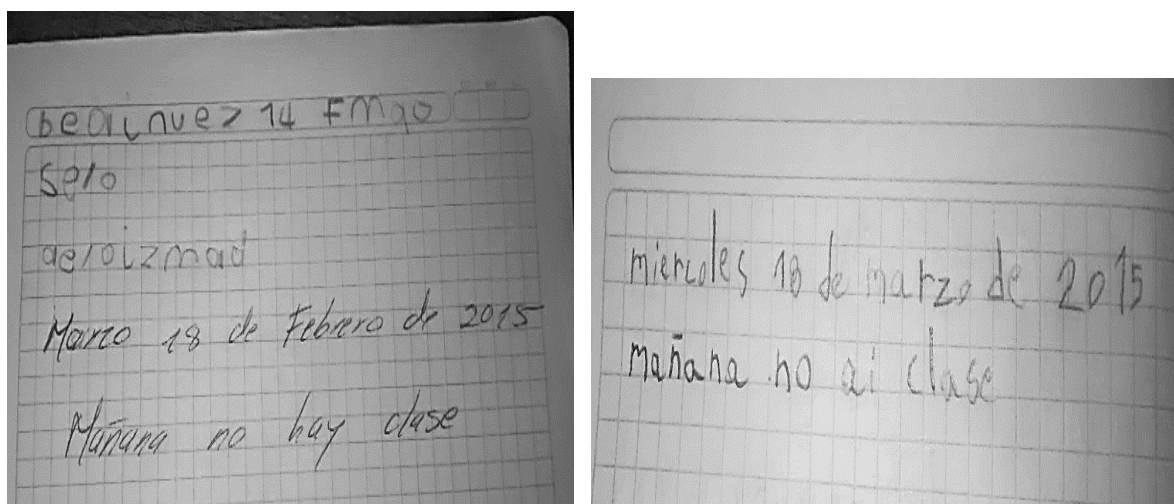 beainuez 14 Fmgo
selo
aeloizmad
Marzo 18 de Febrero de 2015
Mañana no hay clase
miercoles 18 de marzo de 2015
mañana no ai clase